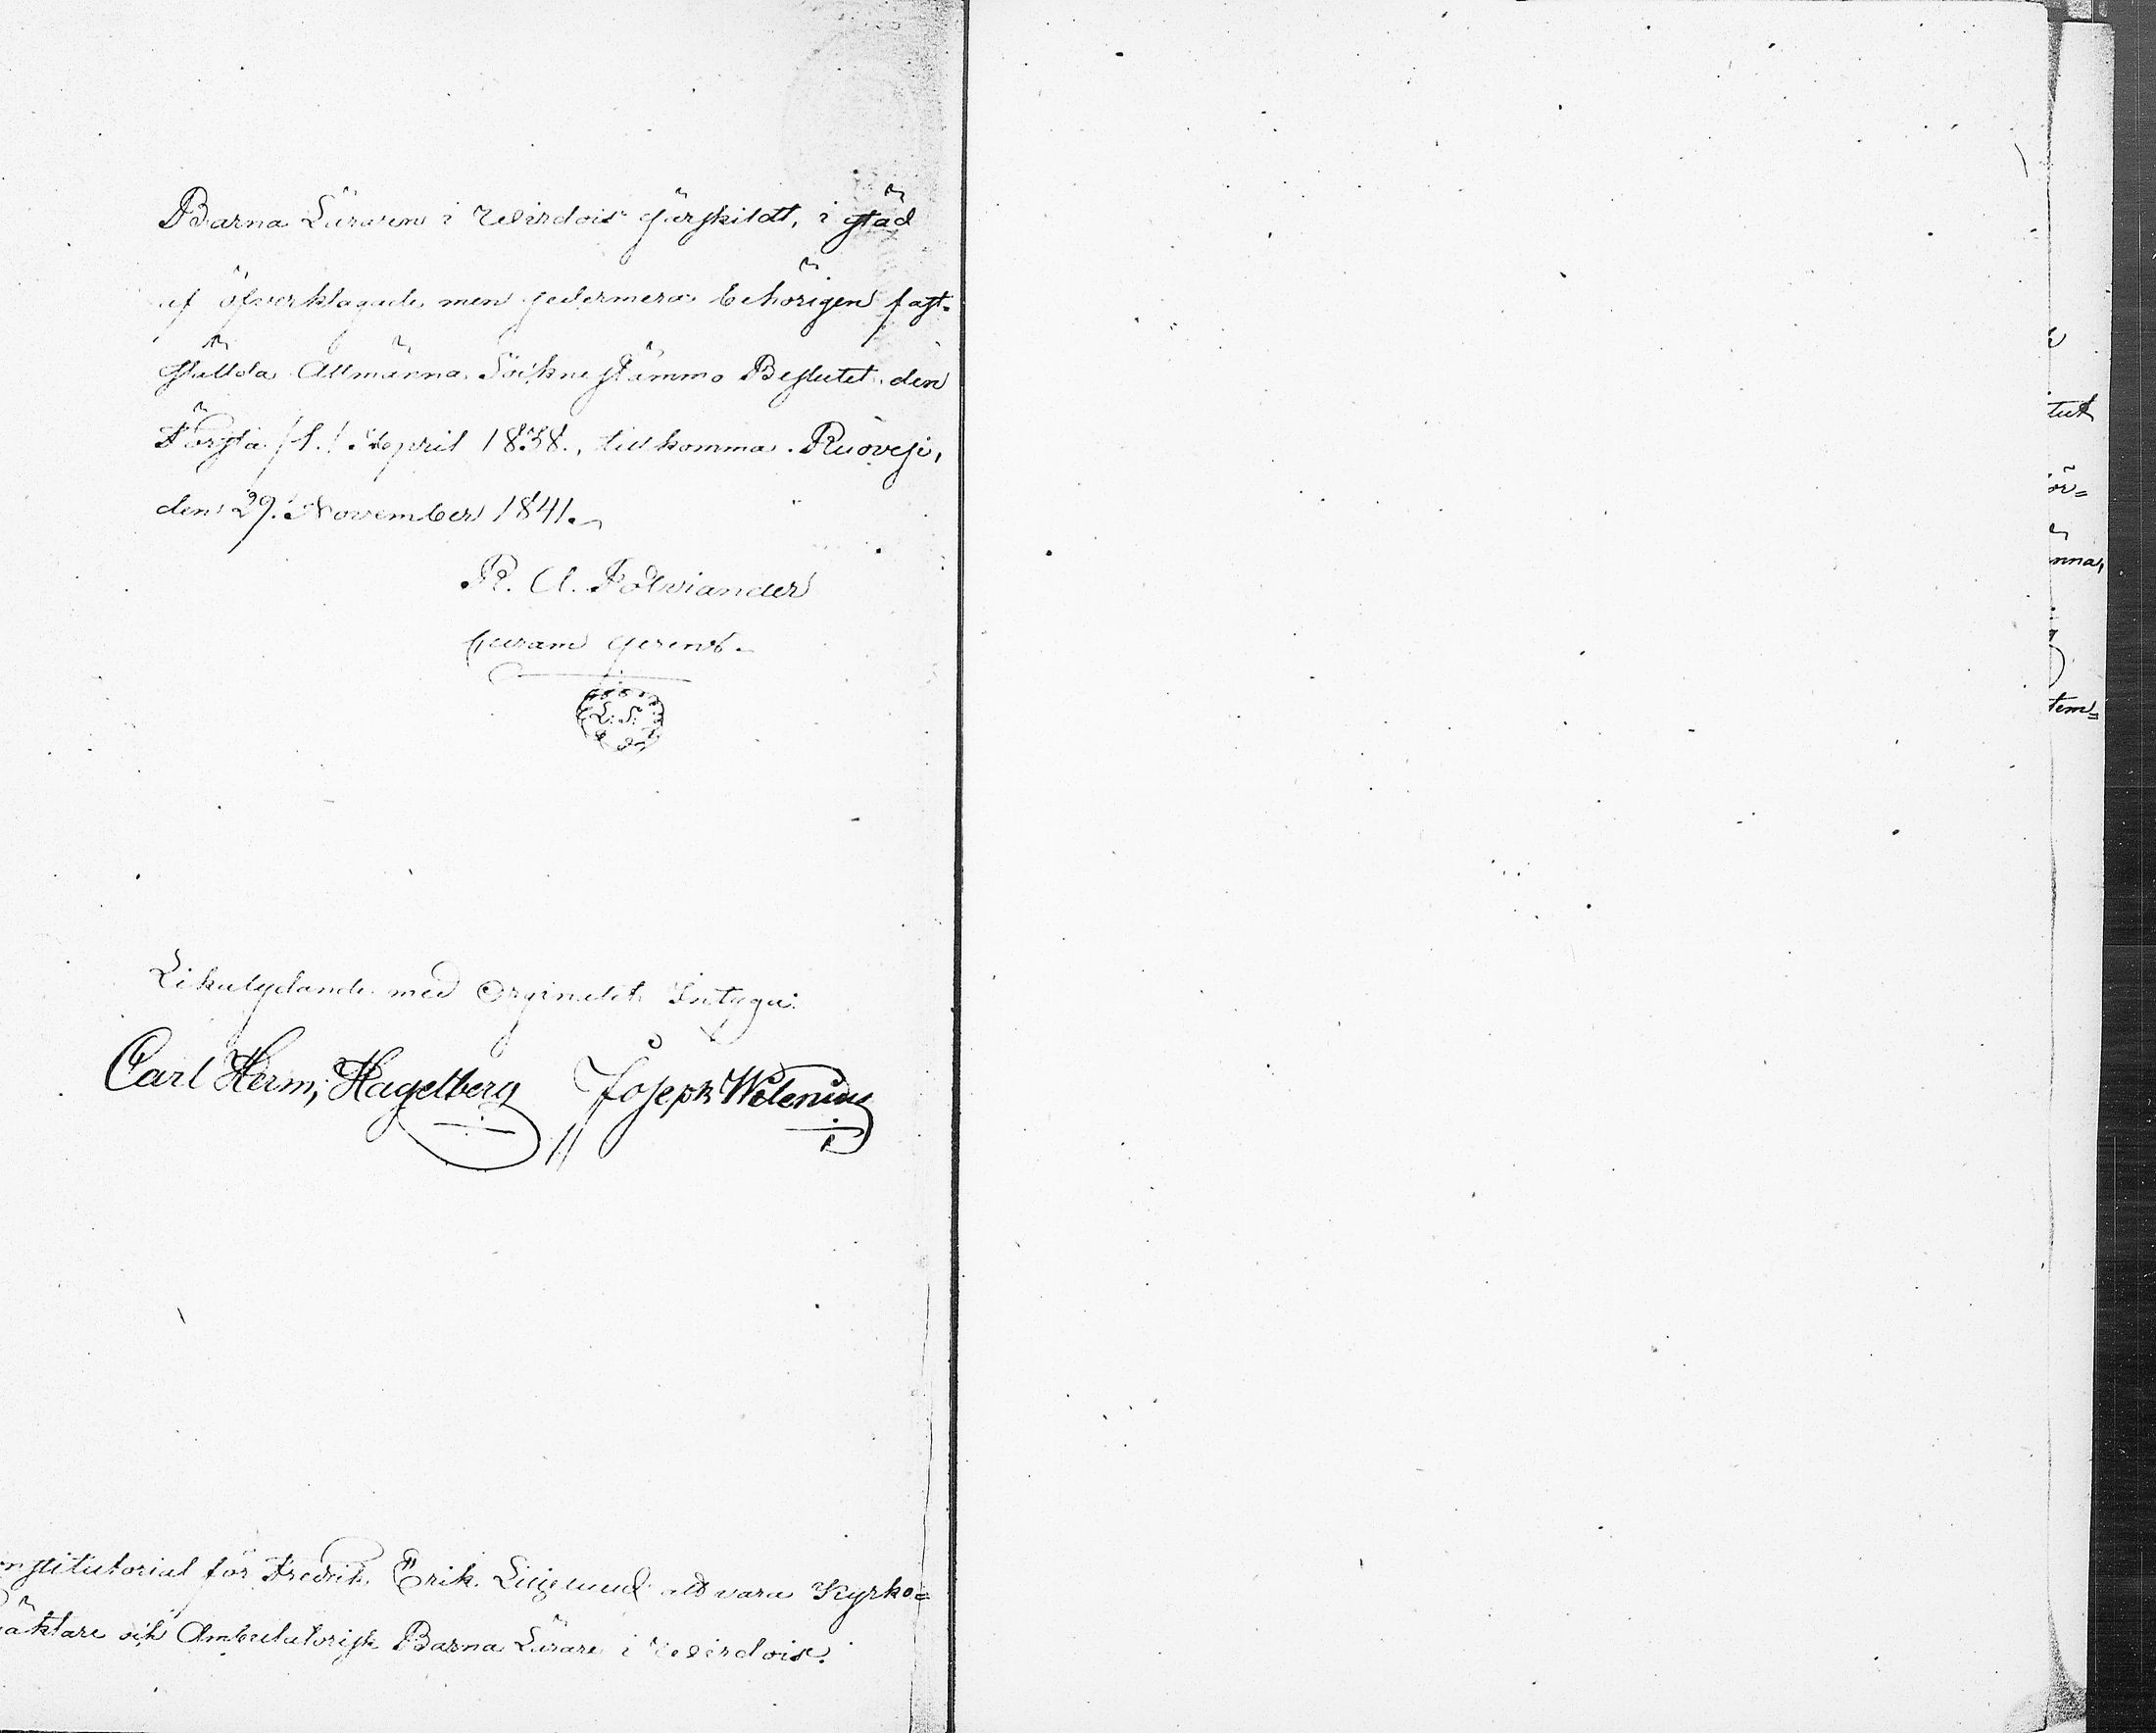 Barna Läraren i Wirdois särskildt, i stöd
af öfverklagade men sedermera behörigen fast-
ställda Allmänna Sockne Stämmo Beslutet den
Första /1./ April 1838., tillkomma. Ruovesi,
den 29. November 1841.
R. A. Polviander
Curam gerens.
L. S.
Likalydande med Orginalet Intyga:
Carl Herm; Hagelberg Joseph Welenius
onstitutorial för Fredrik Erik Liljelund att vara Kyrko=
äktare och Ambulatorisk Barna Lärare i Wirdois.
tut
ör=
nna,
tem=